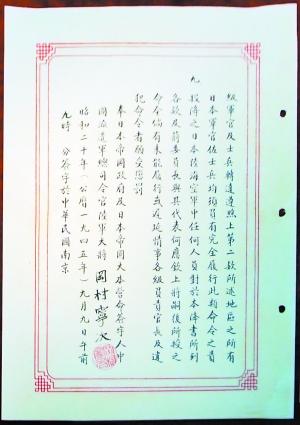 級軍官及士兵轉達遵照上第二款所述地區之所有
日本軍官佐士兵均須負有完全履行此類命令之責
九、投降之日本陸海空軍中任何人員對於本降書所列
各款及蔣委員長與其代表何應欽上將嗣後所授之
命令倘有未能履行或延遲情事各級負責官長及違
犯命令者願受懲罰
奉日本帝國政府及日本帝國大本營命簽字人中
國派遣軍總司令官陸軍大將 岡村寧次
昭和二十年(公曆一九四五年)九月九日午前
九時 分簽字於中華民國南京